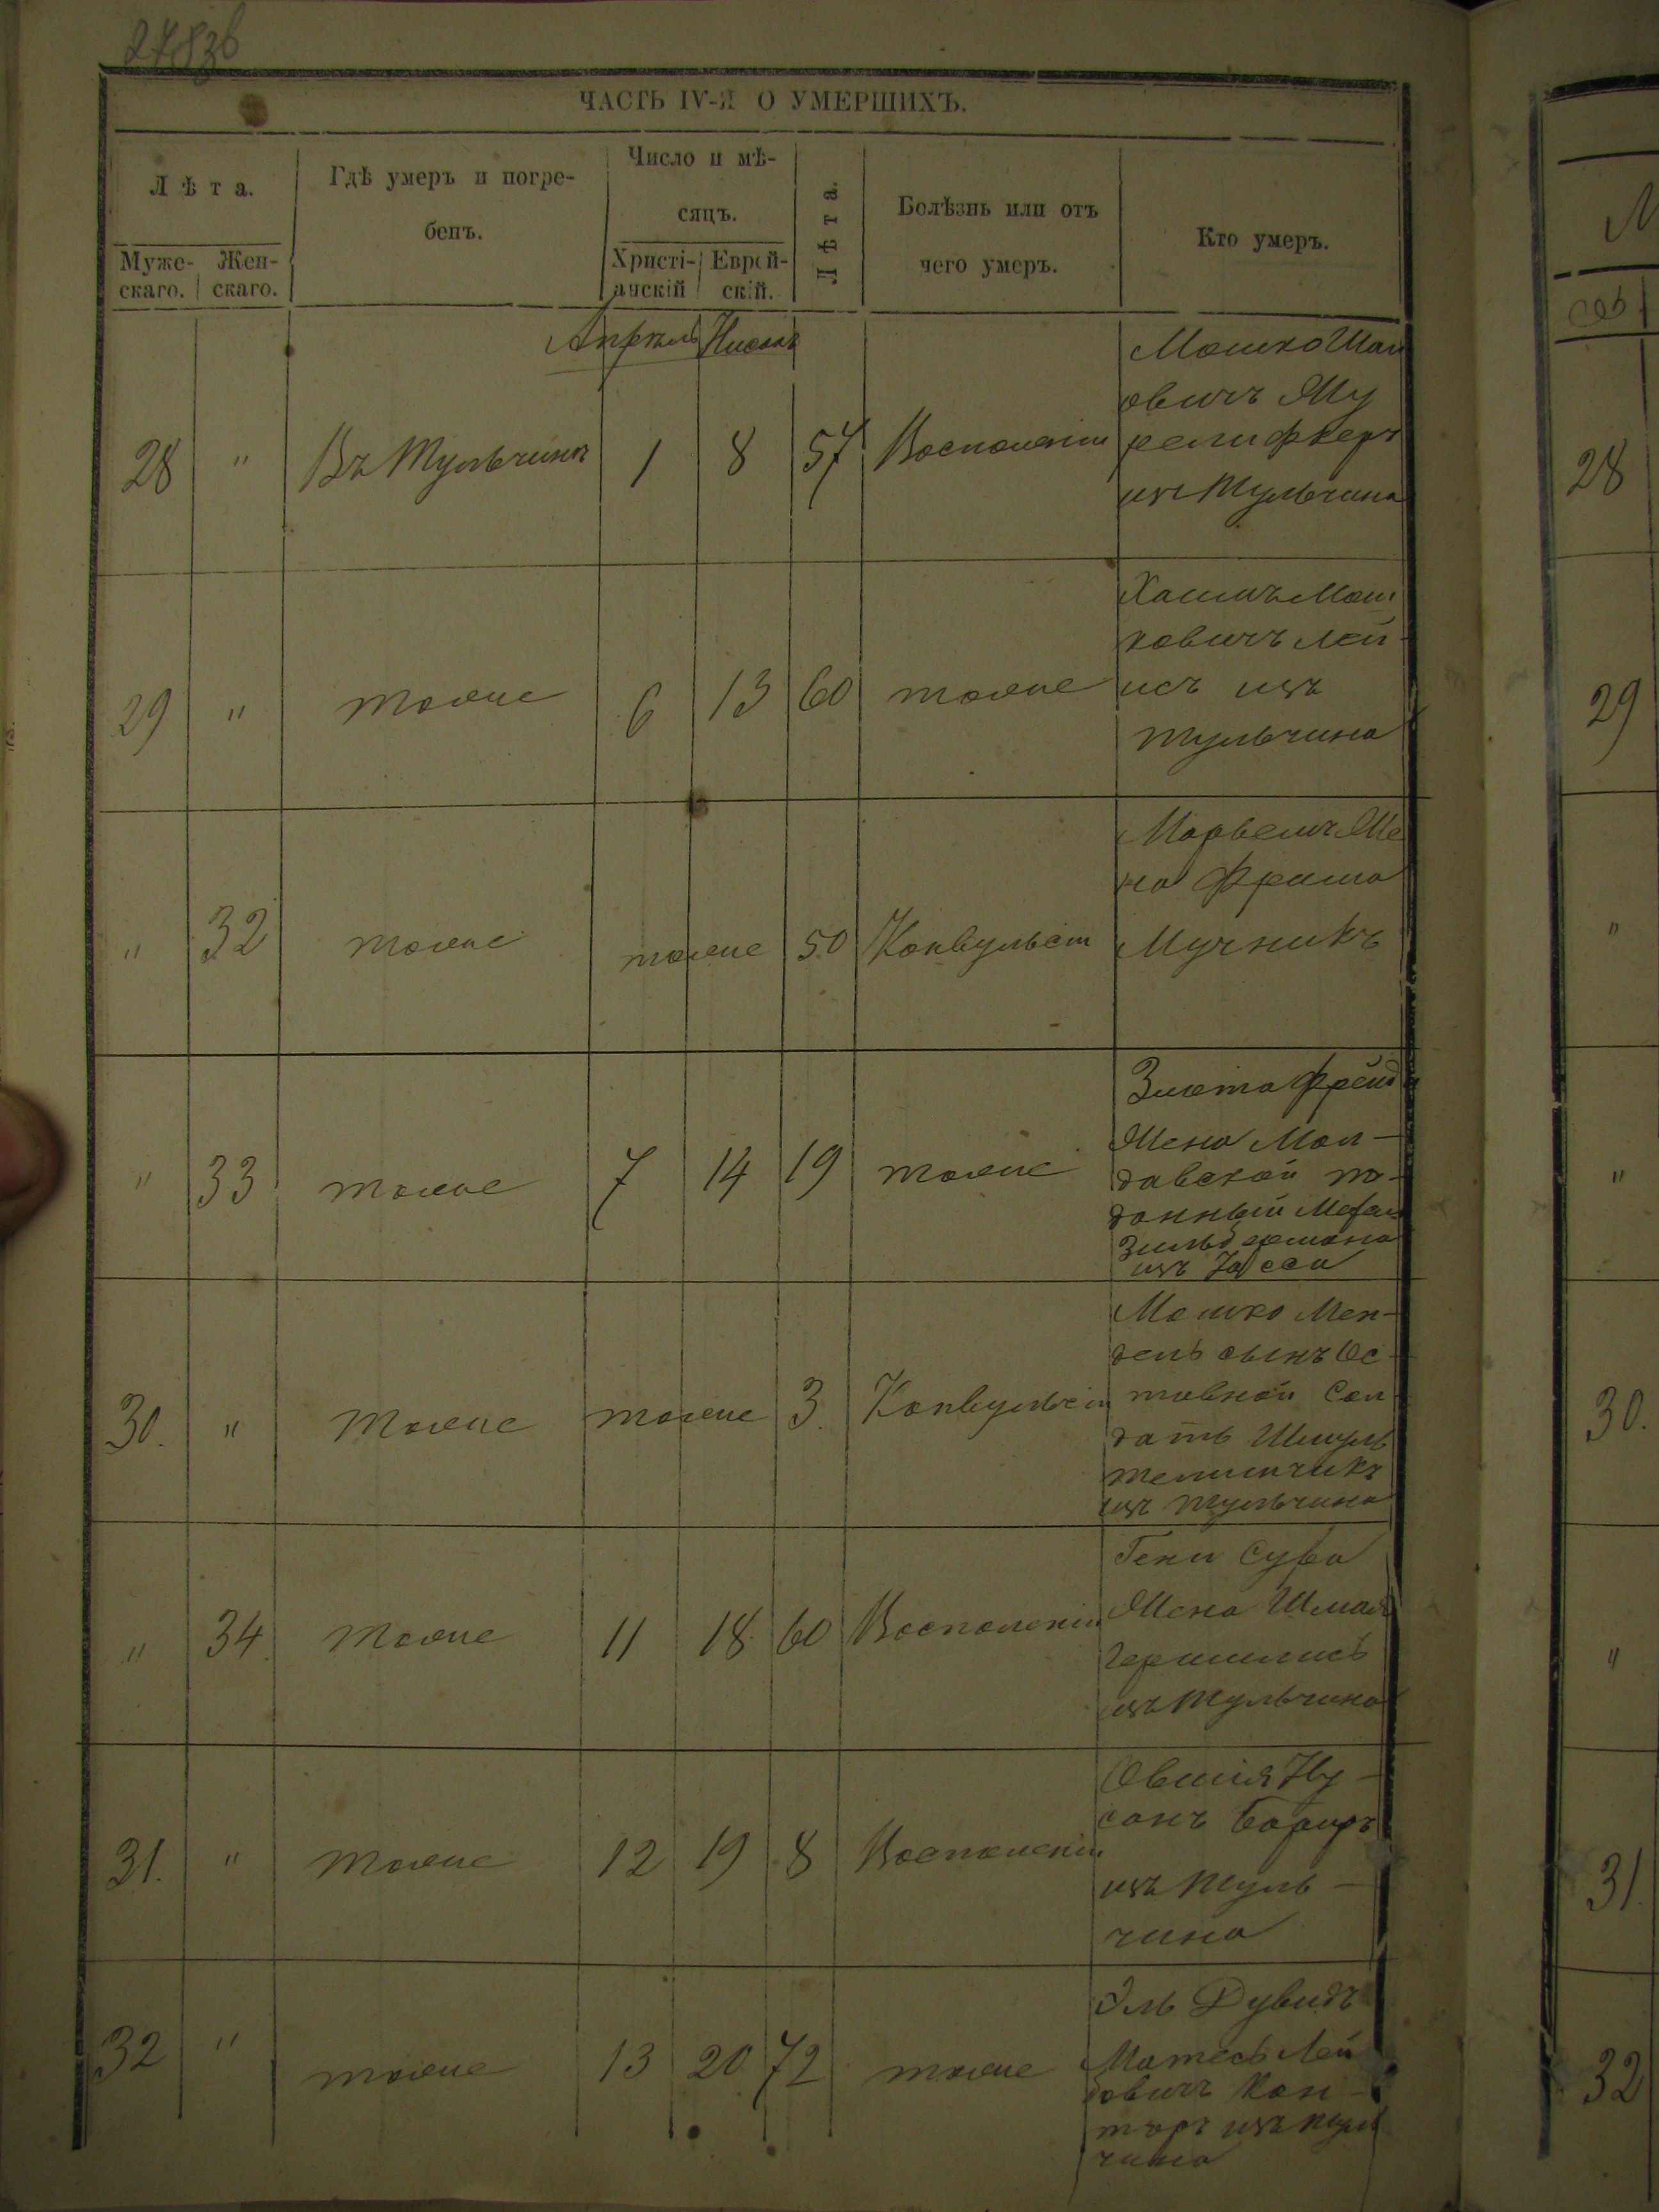 ЧАСТЬ IV-Я О УМЕРШИХЪ.
Лѣта.
Муже-
скаго.
Жен-
скаго.
Гдѣ умеръ и погре-
бенъ.
Число и мѣ-
сяцъ.
Христі-
анскій
Еврей-
скій.
Лѣта.
Болѣзнь или отъ
чего умеръ.
Кто умеръ.
Апрѣль Нисанъ
28 " Въ Тульчинѣ 1 8 57 Воспаленіи
Мошко
овичъ
изъ Тульчина
29 " тоже 6 13 60 тоже
Хаимъ Мош
ковичъ Лей
исъ изъ
тульчина
" 32 тоже тоже 50 Конвульсіи
Же
на Фроима
Мучникъ
" 33 тоже 7 14 19 тоже
Злота Фрейд
Жена Мол-
давской по-
данный
Зильбермана
изъ Яссы
30. " тоже тоже 3. Конвульсіи
Мошко Мен-
дель сынъ От
тавной Сол
датъ Шмуль
изъ тульчина
" 34. тоже 11 18. 60 Воспаленіи
Гени Сура
Жена
изъ Тульчина
31. " тоже 12 19 8 Воспаленіи
Овшія Ну-
санъ
изъ Туль-
чина
32 " тоже 13 20 72 тоже
Эль Дувидъ
Матесъ Лей
бовичъ Кан-
торъ изъ Туль
чина
28
29
"
"
30.
"
31.
32